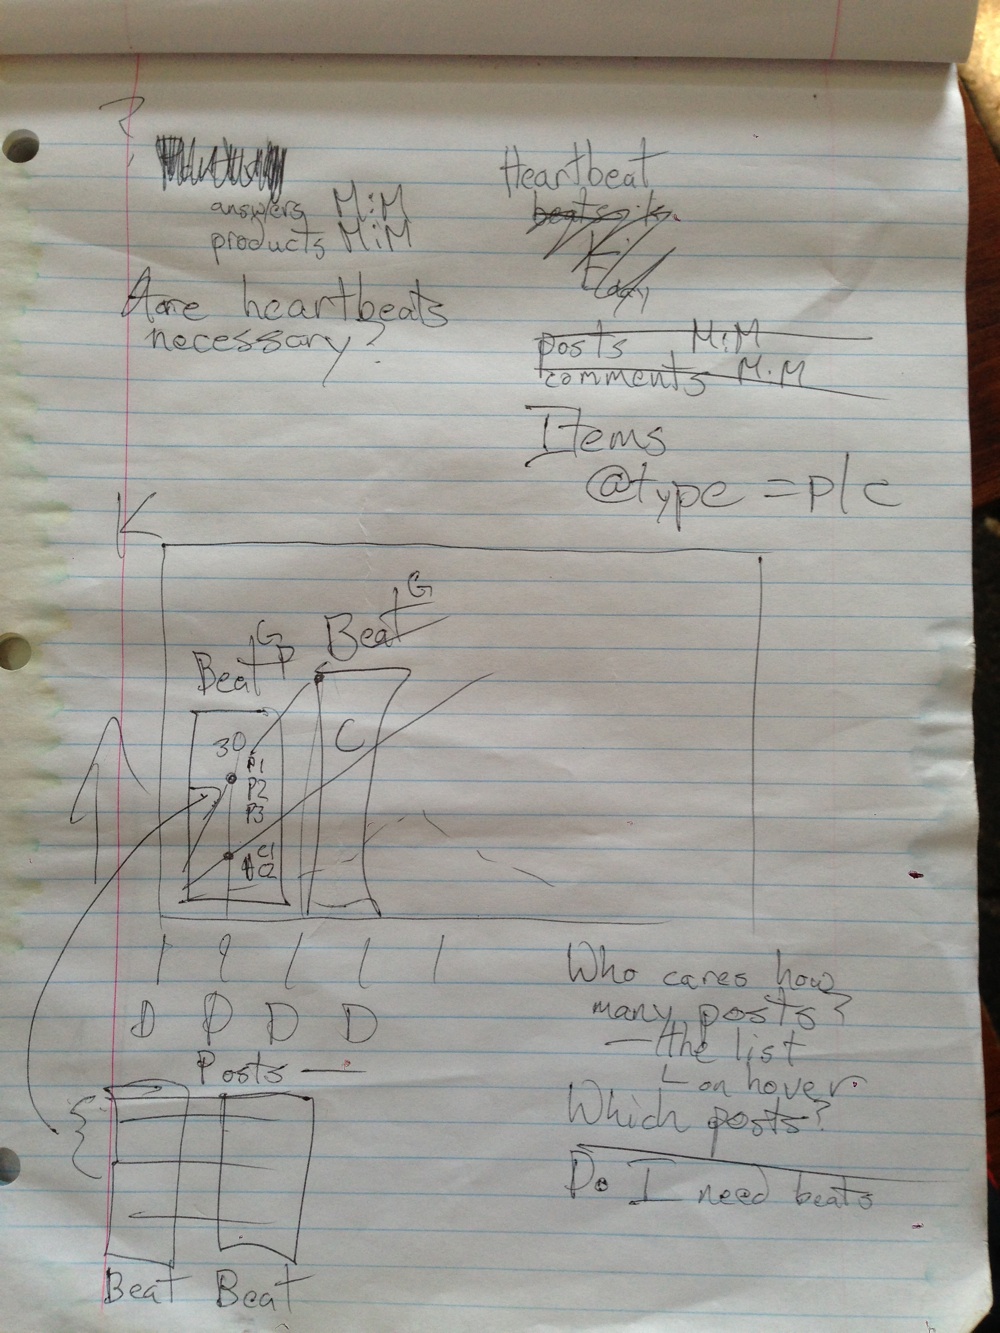 ?
answers M:M
products M:M
Are heartbeats
necessary?
Heartbeat
beats
posts M:M
comments M:M
Items
@type = p/c
K
Beat G P
Beat G
30
P1
P2
P3
C1
C2
C
D D D D
Posts —
Beat Beat
Who cares how
many posts?
— the list
└ on hover
Which posts?
Do I need beats